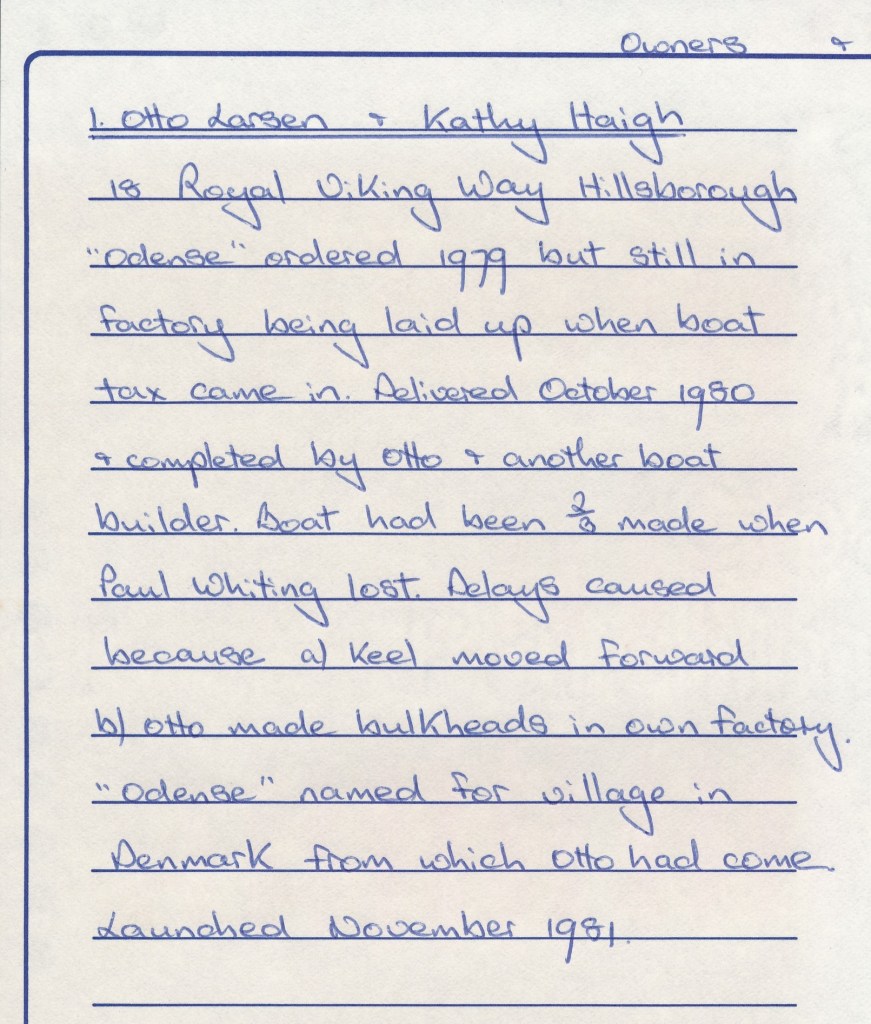 Owners &
1. Otto Larsen & Kathy Haigh
18 Royal Viking Way Hillsborough
"Odense" ordered 1979 but still in
factory being laid up when boat
tax came in. Delivered October 1980
& completed by Otto & another boat
builder. Boat had been 2/3 made when
Paul Whiting lost. Delays caused
because a) Keel moved forward
b) Otto made bulkheads in own factory.
"Odense" named for village in
Denmark from which Otto had come.
Launched November 1981.